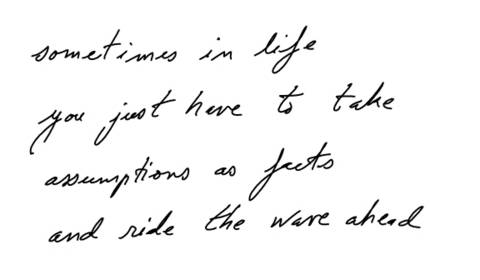 sometimes in life
you just have to take
assumptions as facts
and ride the wave ahead